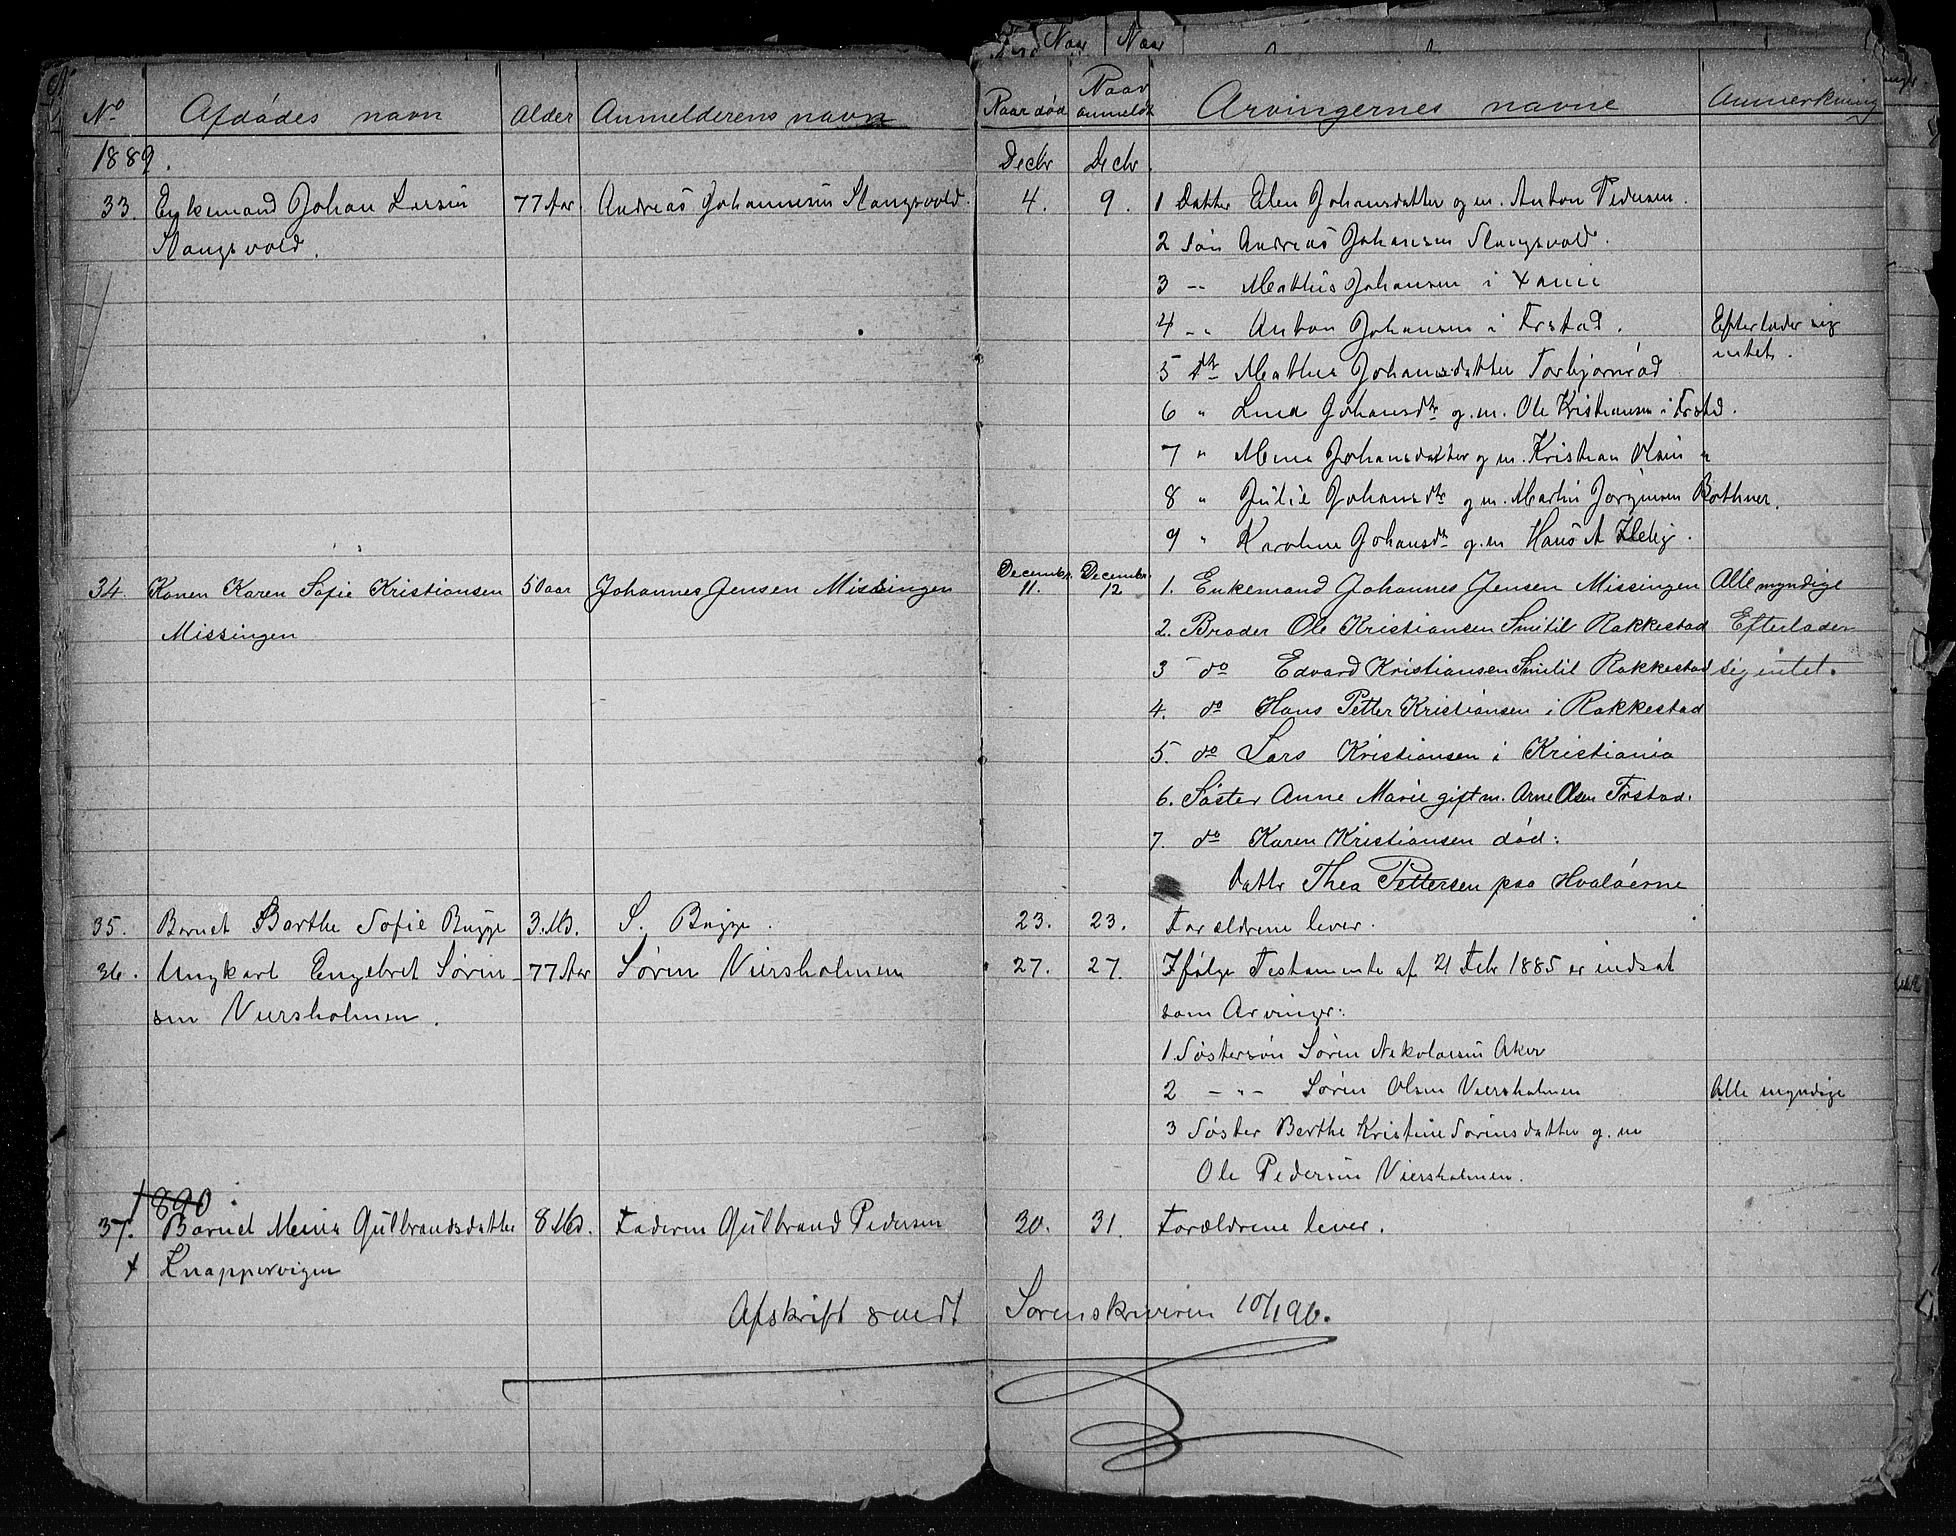 Naar Naar
No Afdødes navn Alder Anmelderens navn Naar død Naar anmeldt Arvingernes navne Anmerkning
1889. Decbr Decbr.
33. Enkemand Johan Larsen 77 Aar. Andreas Johannesen Stangsvold. 4. 9. 1 Datter Elen Johansdatter g. m. Anton Pedersen.
Stangsvold. 2 Søn Andreas Johansen Stangsvold.
3 -- Mathis Johansen i
4 -- Anton Johansen i Frstad. Efterlader sig
intet.
5 Dtr Mathea Johansdatter Torbjørnrød
6 " Johansdtr g. m. Ole Kristiansen i Frstd.
7 " Johansdatter g m. Kristian Olsen "
8 " Julie Johansdtr g m. Martin Jørgensen Bothner.
9 " Karoline Johansdtr g. m Hans A
34. Konen Karen Sofie Kristiansen 50 aar Johannes Jensen Missingen Decembr. 11. Decembr. 12 1. Enkemand Johannes Jensen Missingen Alle myndige
Missingen 2. Broder Ole Kristiansen Smitil Rakkestad Efterlader
3 do Edvard Kristiansen Smitil Rakkestad sig intet.
4. do Hans Petter Kristiansen i Rakkestad
5. do Lars Kristiansen i Kristiania
6. Søster Anne Marie gift m. Arne Olsen Frstad.
7. do Karen Kristiansen død:
Dattr Thea Pettersen paa Hvaløerne
35. Barnet Barthe Sofie Bugge 3. Md. S. Bugge. 23. 23. Forældrene lever.
36. Ungkarl Engebret Søren- 77 Aar Søren Viersholmen 27. 27. Ifølge Testamente af 21 Febr 1885 er indsat
sen Viersholmen. som Arvinger:
1 Søstersøn Søren Nikolaisen Aker
2 - " - Søren Olsen Viersholmen Alle myndige
3 Søster Berthe Kristine Sørensdatter g. m
Ole Pedersen Viersholmen.
1890.
37. Barnet Mina Gulbrandsdatter 8 Md. Faderen Gulbrand Pedersen 30. 31. Forældrene lever.
Knappervigen
Afskrift sendt Sorenskriveren 10/1 90.